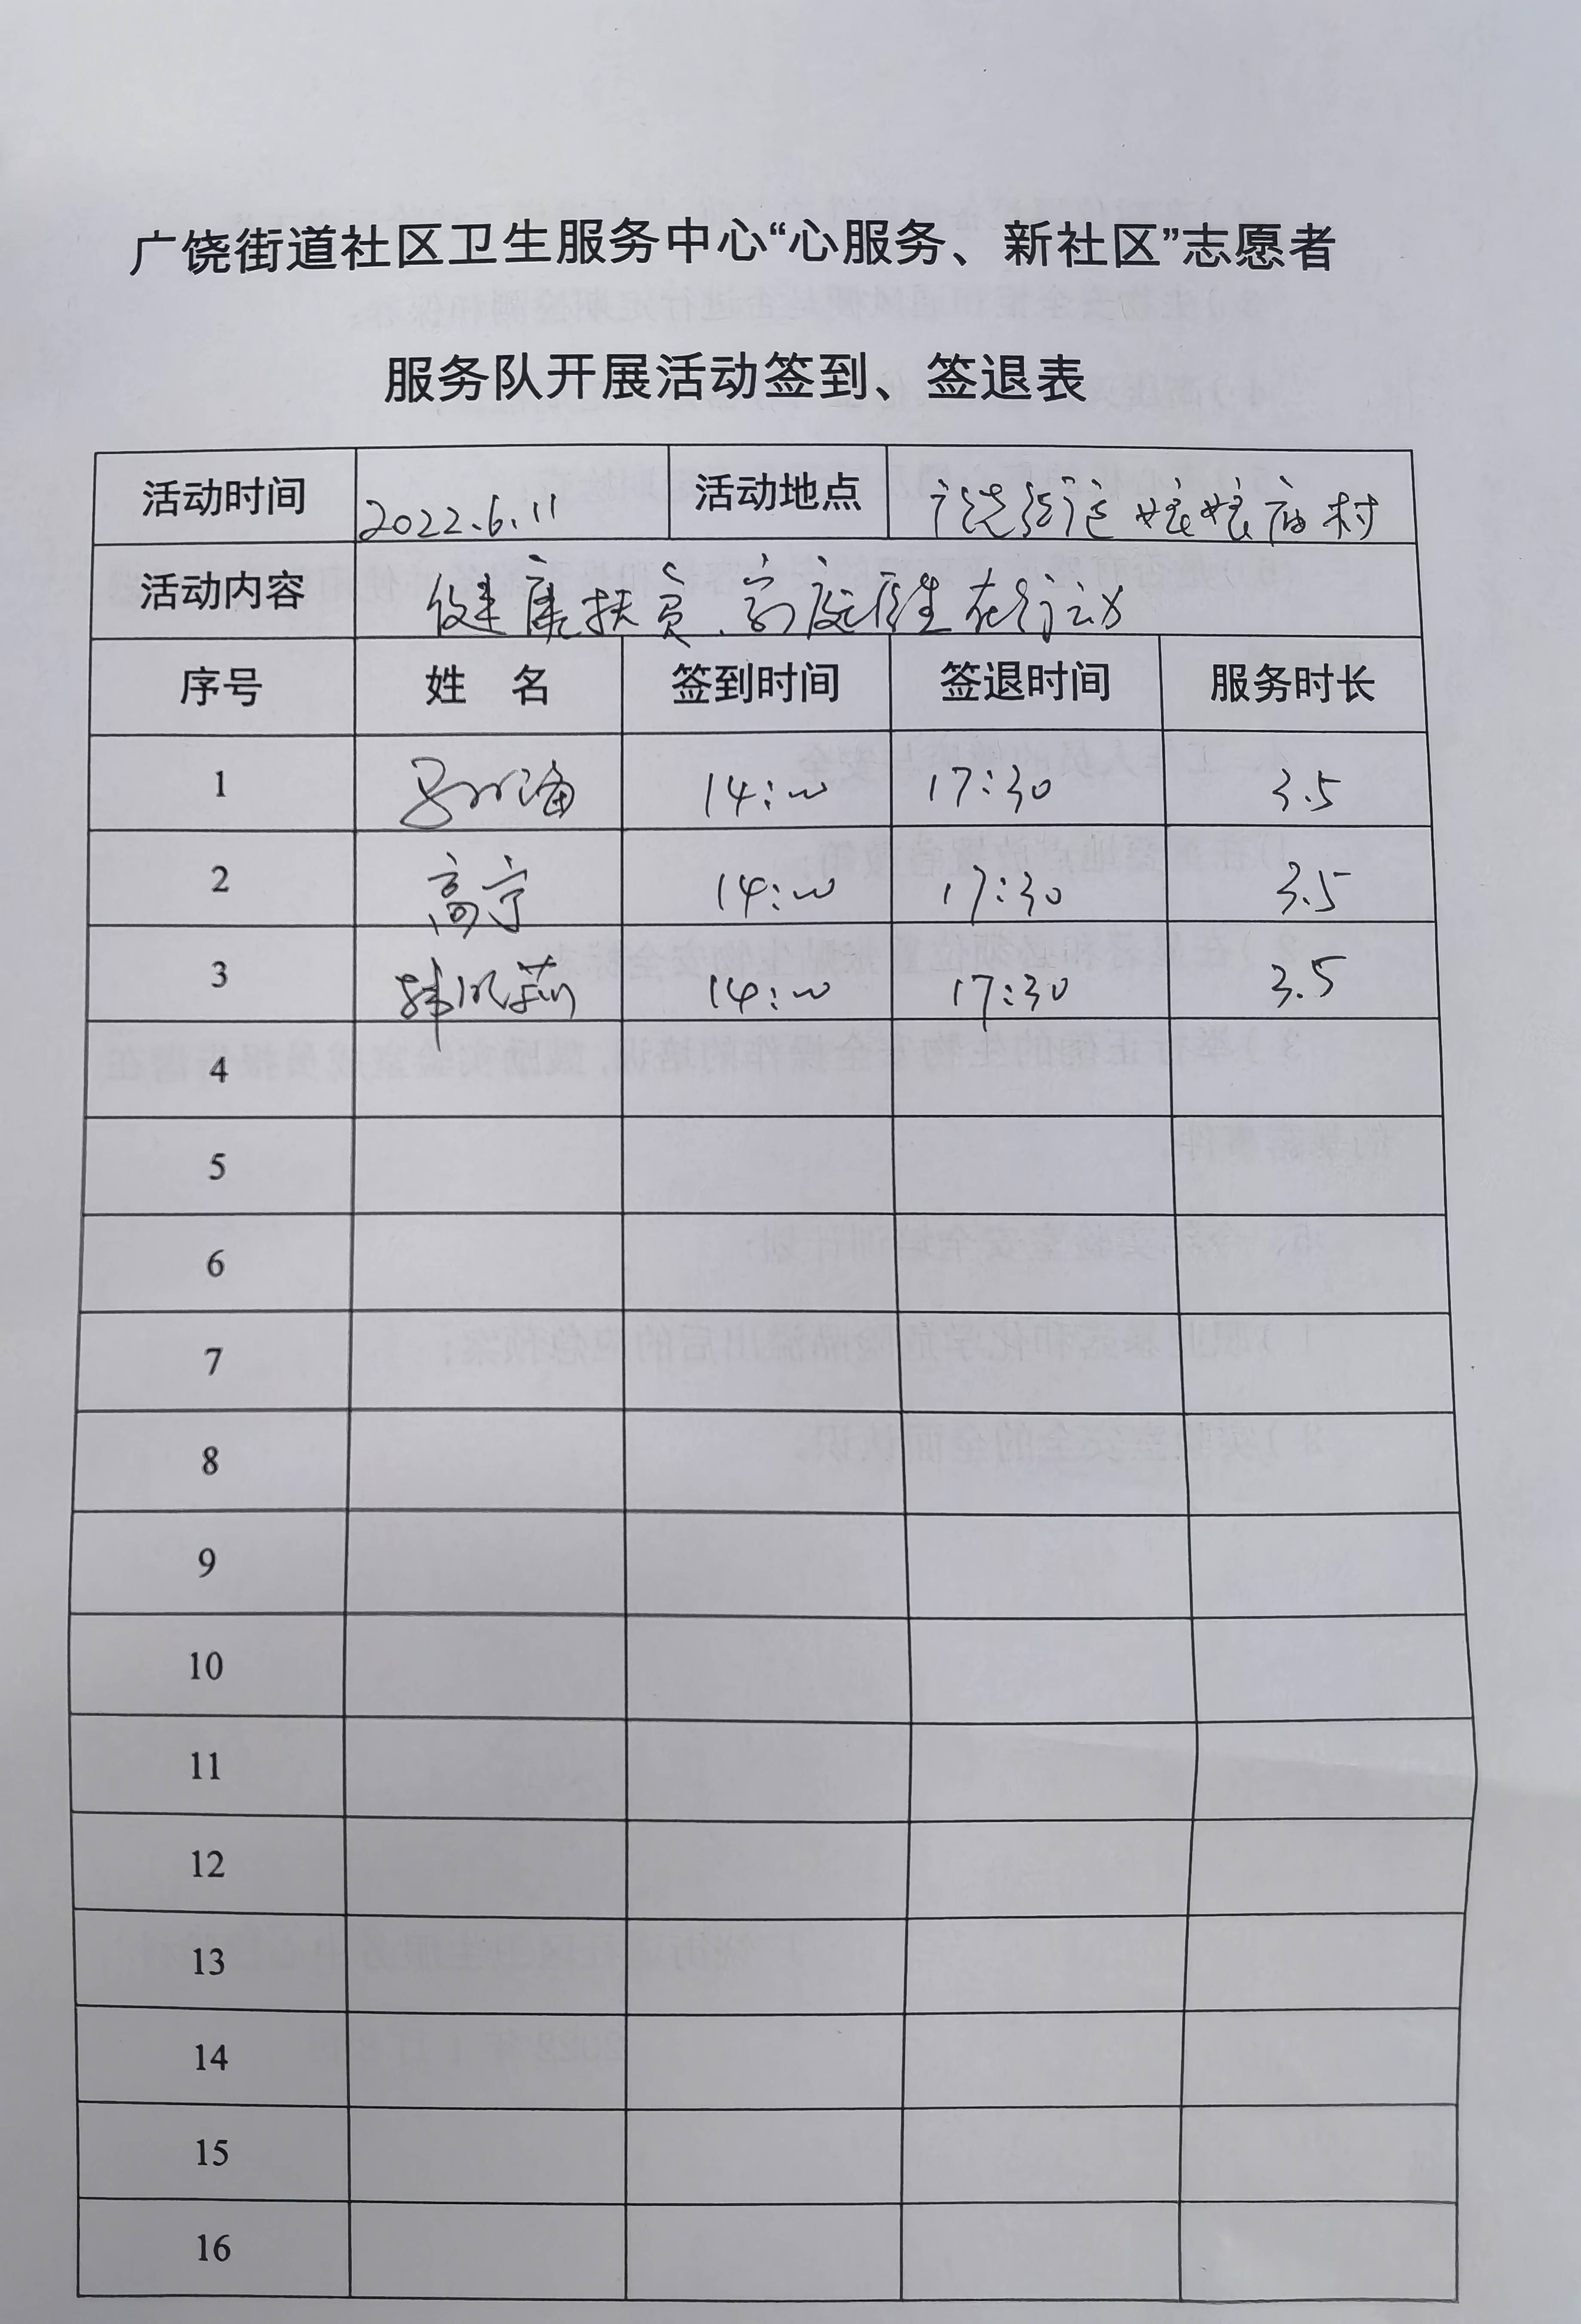 广饶街道社区卫生服务中心“心服务、新社区”志愿者
服务队开展活动签到、签退表
活动时间 2022.6.11 活动地点 广饶街道娘娘庙村
活动内容 健康扶贫、家庭医生在行动
序号 姓 名 签到时间 签退时间 服务时长
1 14:00 17:30 3.5
2 高宁 14:00 17:30 3.5
3 14:00 17:30 3.5
4
5
6
7
8
9
10
11
12
13
14
15
16